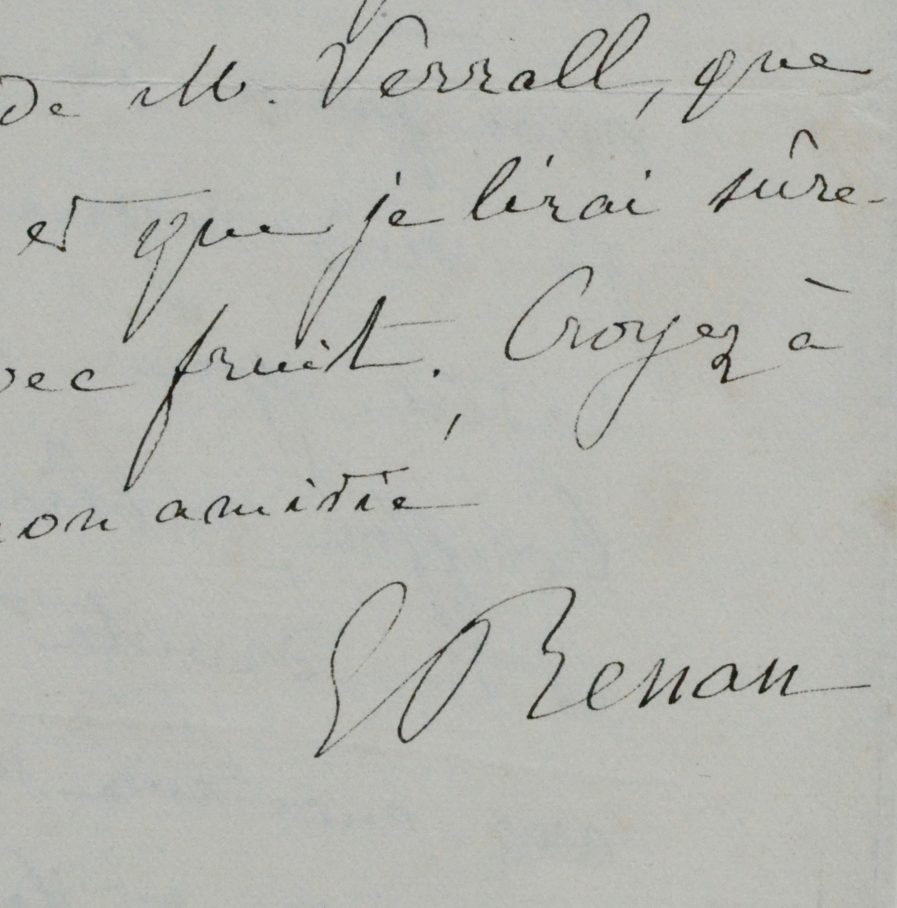 de M. Verrall, que
et que je lirai sûre-
vec fruit. Croyez à
mon amitié
E Renan